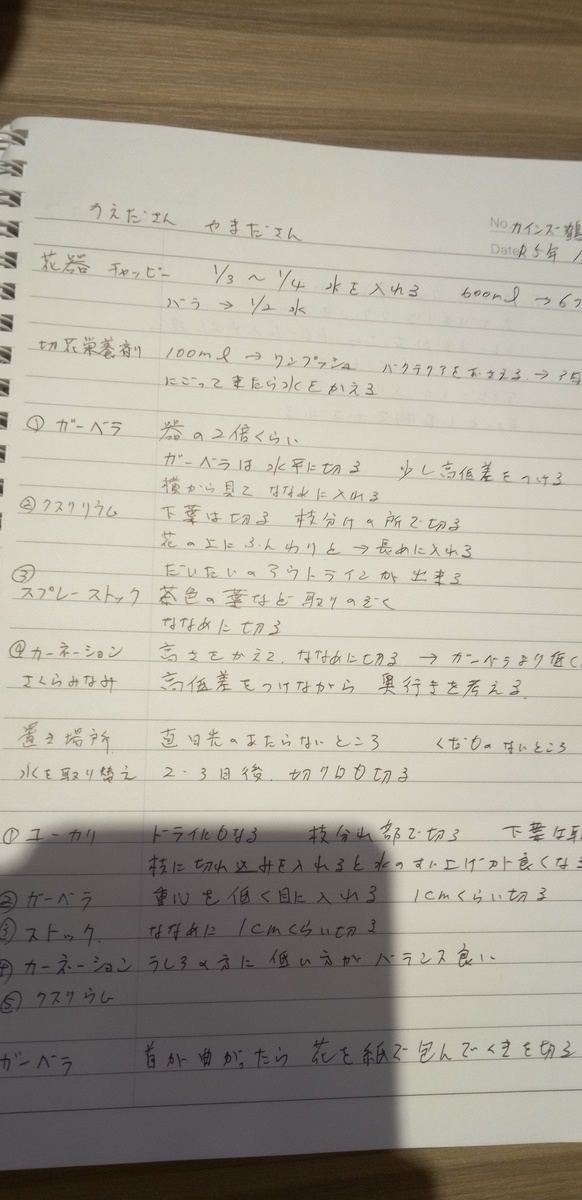 うえださん やまださん
No. カインズ 鶴
Date R5年 1
花器 チャッピー 1/3 ～ 1/4 水を入れる 600ml → 6プ
バラ → 1/2 水
切花栄養剤 100ml → ワンプッシュ バクテリアをおさえる →
にごって来たら水をかえる
① ガーベラ 器の2倍くらい
ガーベラは水平に切る 少し高低差をつける
横から見てななめに入れる
② クスクリウム 下葉は切る 枝分けの所で切る
花の上にふんわりと → 長めに入れる
③ だいたいのアウトラインが出来る
スプレーストック 茶色の葉など取りのぞく
ななめに切る
④ カーネーション 高さをかえて、ななめに切る → ガーベラより低く
さくらみなみ 高低差をつけながら 奥行きを考える
置き場所 直日光のあたらないところ くだものないところ
水を取り替え 2・3日後、切り口も切る
① ユーカリ ドライにもなる 枝分れ部で切る 下葉は取
枝に切れ込みを入れると水のすい上げが良くなる
② ガーベラ 重心を低く目に入れる 1cmくらい切る
③ ストック ななめに 1cmくらい切る
④ カーネーション うしろの方に低い方がバランス良い
⑤ クスリウム
ガーベラ 首が曲がったら 花を紙で包んでくきを切る